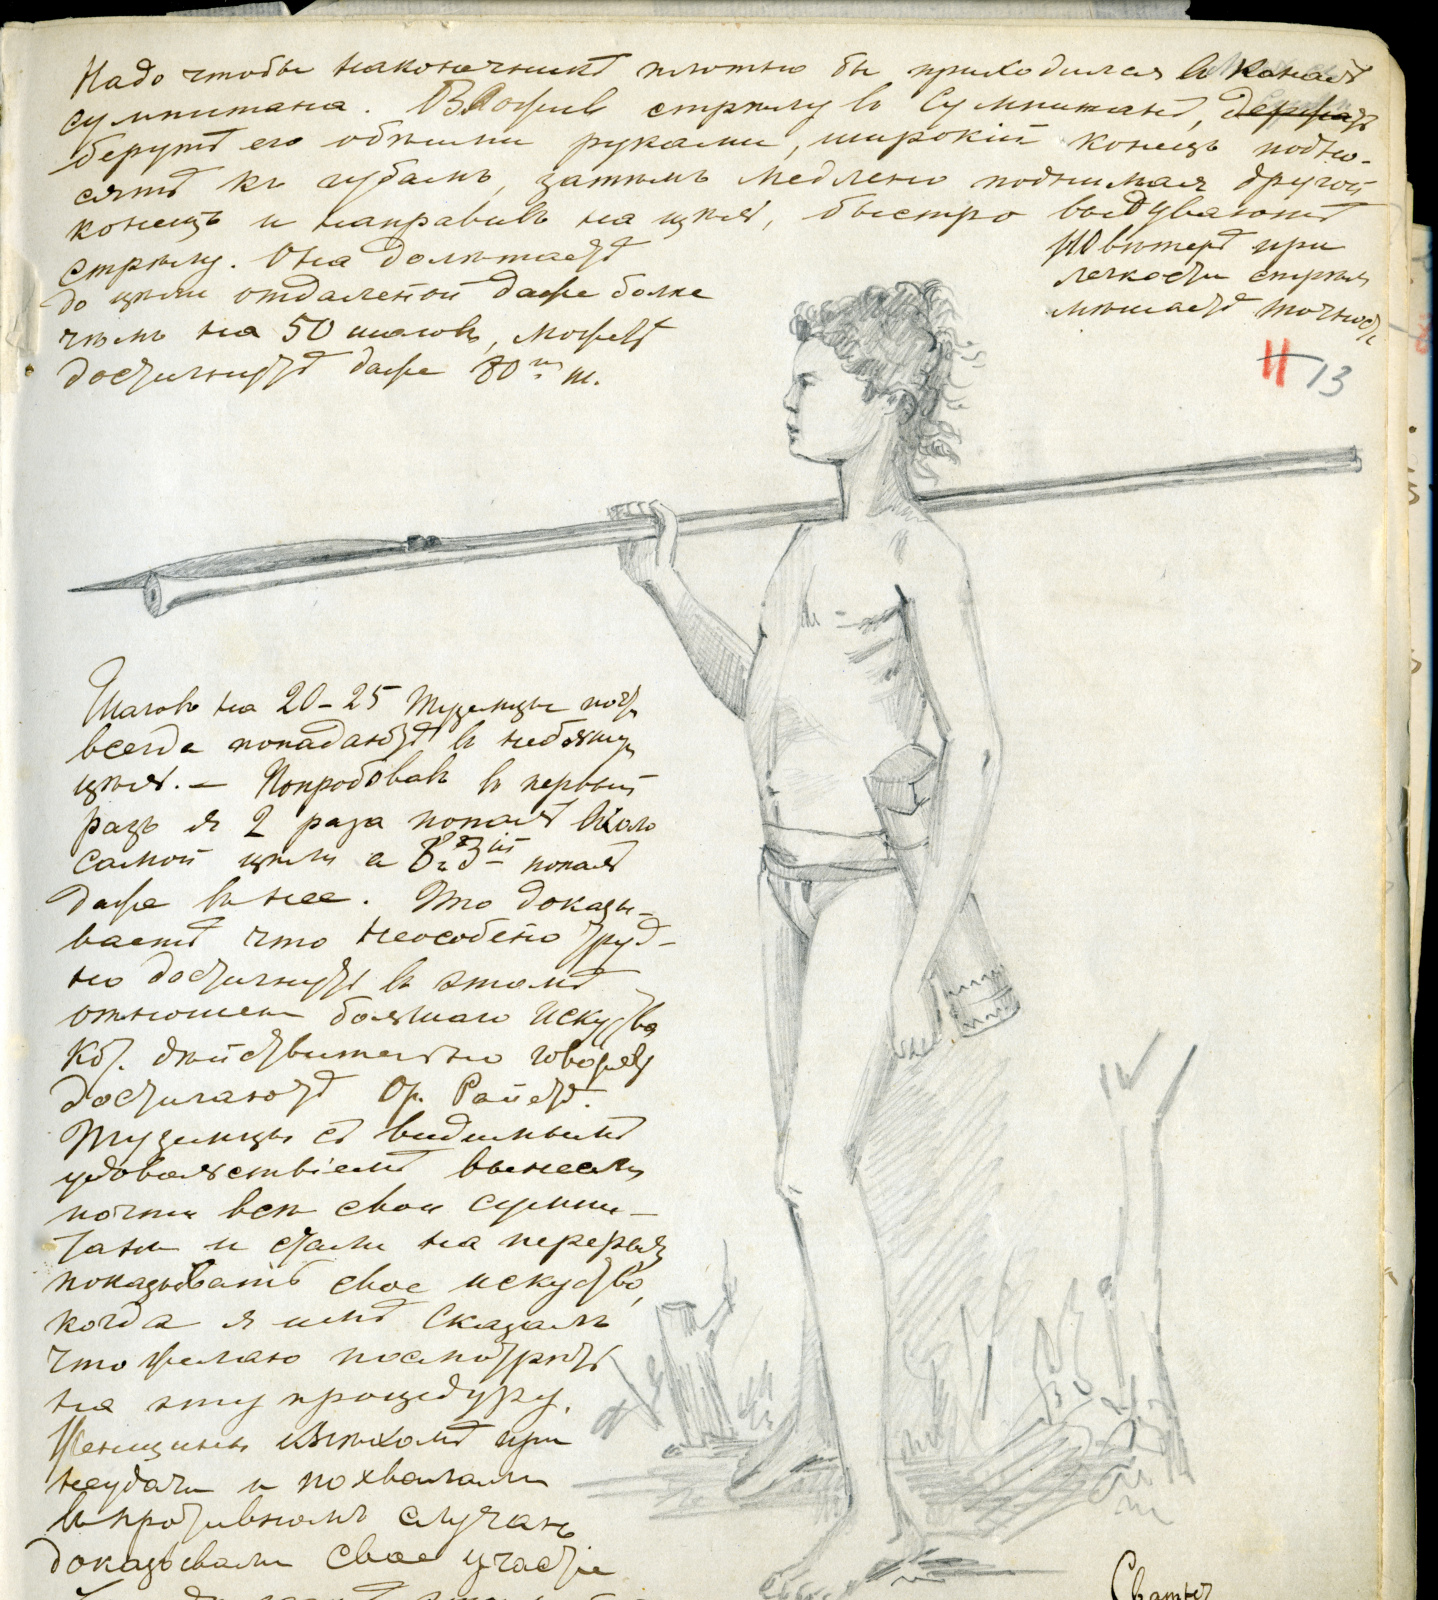 Надо чтобы наконечникъ плотно бы приходился въ каналъ
сумпитана. Вложивъ стрѣлу въ сумпитанъ, держатъ
берутъ его обѣими руками, широкій конецъ подно-
сятъ къ губамъ, затѣмъ медлено поднимая другой
конецъ и направивъ на цѣль, быстро выдуваютъ
стрѣлу. Она долѣтаетъ
до цѣли отдаленой даже болѣе
чѣмъ на 50 шаговъ, можетъ
достигнуть даже 80 ш.
но вѣтеръ при
легкости стрѣлъ
мѣшаетъ точности
II 13
Шаговъ на 20-25 туземцы почти
всегда попадаютъ въ небольшую
цѣль. — Попробовавъ въ первый
разъ я 2 раза попалъ около
самой цѣли а въ 3ій попалъ
даже въ нее. Это доказы-
ваетъ что неособено труд-
но достигнуть въ этомъ
отношен большаго искуства
кот. дѣйствительно говорятъ
достигаютъ Ор. Райетъ.
Туземцы съ видимымъ
удовольствіемъ вынесли
почти всѣ свои сумпи-
таны и стали на перерывъ
показывать свое искуство,
когда я имъ сказалъ
что желаю посмотрѣть
на эту процедуру.
Женщины при
неудачи и похвалами
въ противномъ случаѣ
доказывали свое участіе